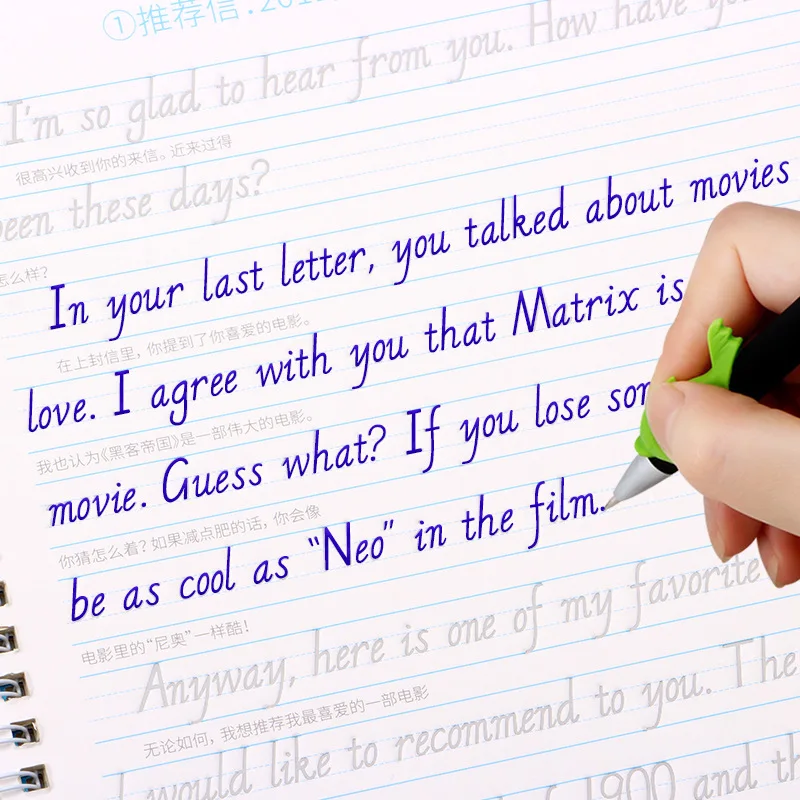 ①推荐信
I'm so glad to hear from you. How have
很高兴收到你的来信。近来过得
been these days?
怎么样？
In your last letter, you talked about movies
在上封信里，你提到了你喜爱的电影。
love. I agree with you that Matrix is
我也认为《黑客帝国》是一部伟大的电影。
movie. Guess what? If you lose
你猜怎么着？如果减点肥的话，你会像
be as cool as "Neo" in the film.
电影里的“尼奥”一样酷！
Anyway, here is one of my favorite
无论如何，我想推荐我最喜爱的一部电影
I would like to recommend to you. The
of 1900 and